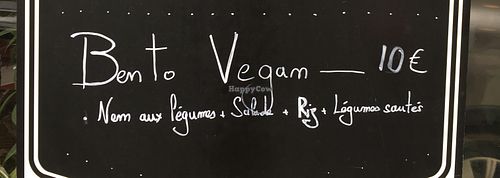 Bento Vegan — 10€
. Nem aux légumes + Salade + Riz + Légumes sautés
HappyCow